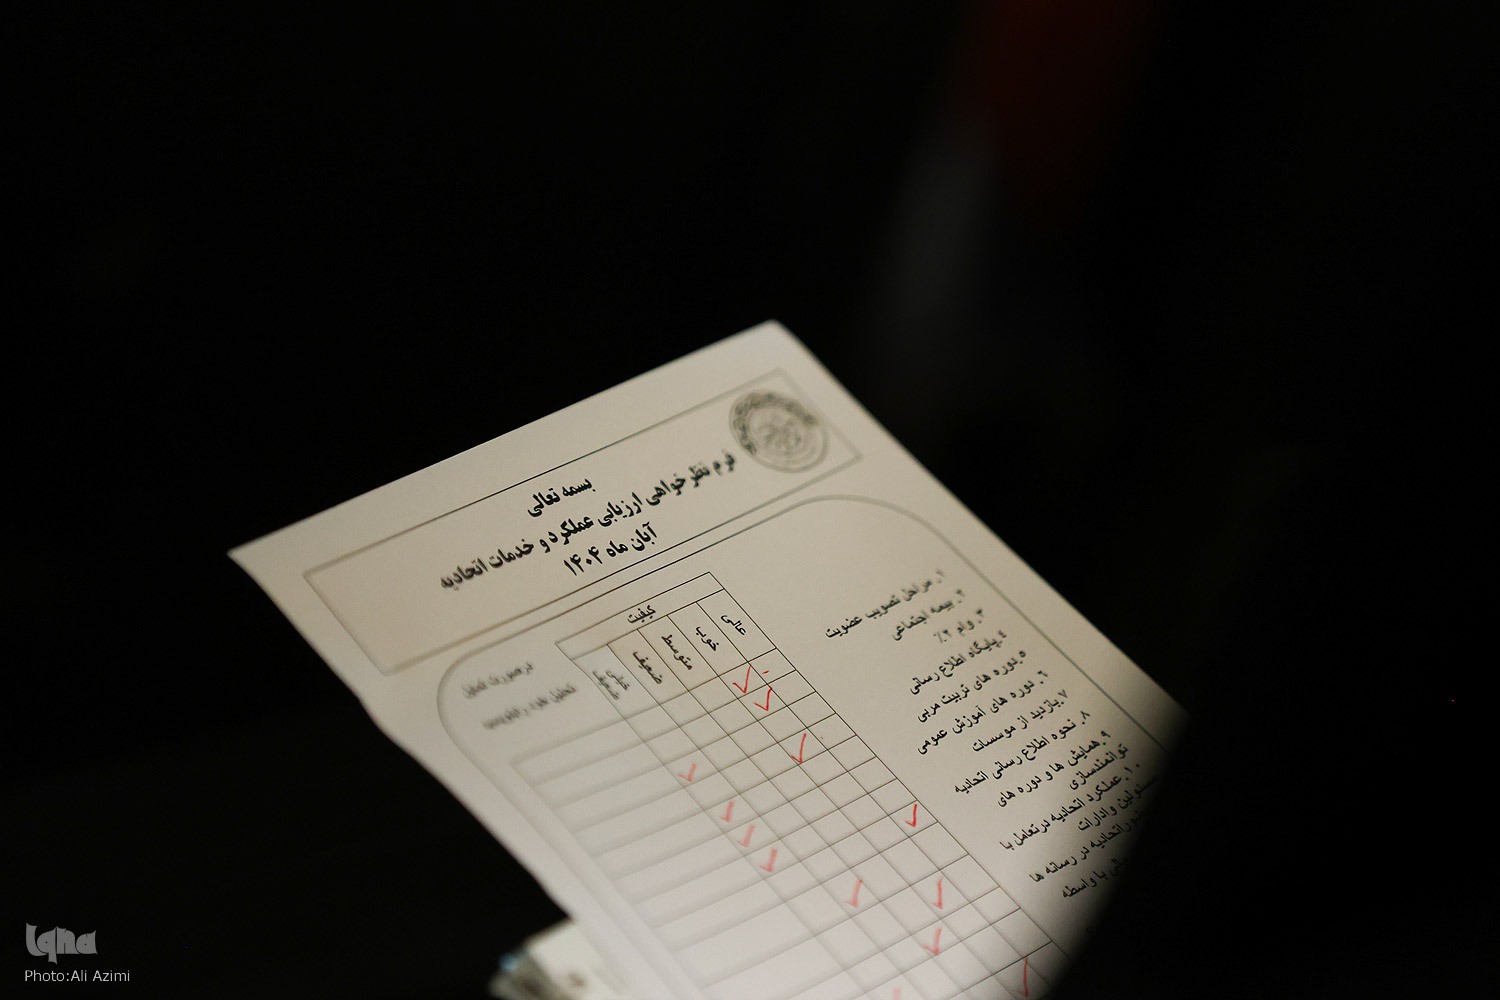 بسمه تعالی
فرم نظرخواهی ارزیابی عملکرد و خدمات اتحادیه
آبان ماه ۱۴۰۴
کیفیت
عالی
خوب
متوسط
ضعیف
خیلی ضعیف
درصورت تمایل
۱. مراحل تصویب عضویت
۲. بیمه اجتماعی
۳. وام ۲٪
۴.پایگاه اطلاع رسانی
۵.دوره های تربیت مربی
۶. دوره های آموزش عمومی
۷.بازدید از موسسات
۸. نحوه اطلاع رسانی اتحادیه
۹.همایش ها و دوره های
توانمندسازی
۱۰.عملکرد اتحادیه در تعامل با
وادارات
اتحادیه در رسانه ها
با واسطه
Iqna
Photo:Ali Azimi